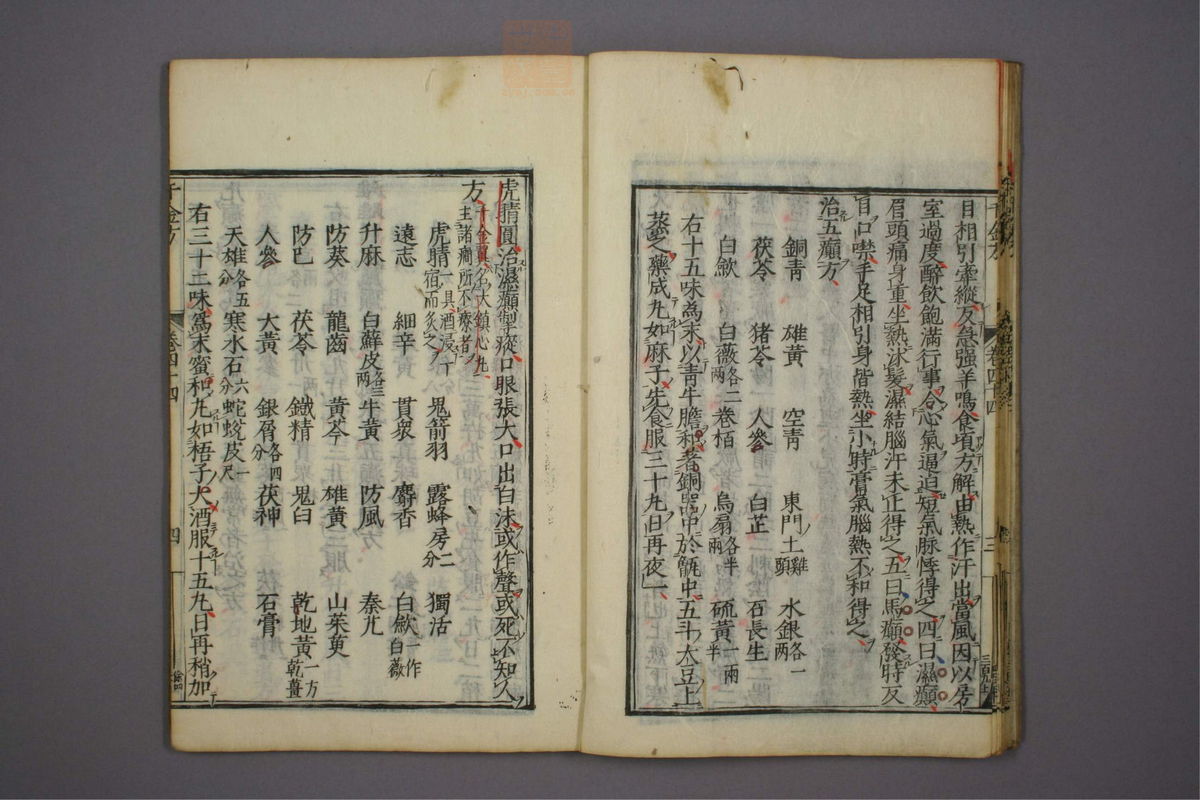 目相引牽縱反急强羊鳴食頃方解由熱作汗出當風因以房
室過度醉飲飽滿行事令心氣逼迫短氣脉悸得之四曰濕癲
眉頭痛身重坐熱沐髮濕結腦汗未止得之五曰馬癲發時反
目口噤手足相引身皆熱坐小時膏氣腦熱不和得之
治五癲方
銅青 雄黃 空青 東門上雞頭 水銀各一兩
茯苓 猪苓 人參 白芷 石長生
白歛 白薇各二兩 卷栢 烏扇各半兩 硫黃一兩半
右十五味為末以青牛膽和著銅器中於甑中五斗大豆上
蒸之藥成丸如麻子先食服三十九日再夜一
千金方 卷四十四 三
虎睛圓治濕癲掣瘲口眼張大口出白沫或作聲或死不知人
方千金翼名大鎮心丸主諸癇所不療者
虎睛一具酒浸一宿而炙之 鬼箭羽 露蜂房二分 獨活
遠志 細辛 貫衆 麝香 白歛一作白薇
升麻 白蘚皮各三兩 牛黃 防風 秦艽
防葵 龍齒 黃芩 雄黃 山茱萸
防巳 茯苓 鐵精 鬼臼 乾地黃一方乾薑
人參 大黃 銀屑各四分 茯神 石膏
天雄各五分 寒水石六分 蛇蛻皮一尺
右三十二味為末蜜和丸如梧子大酒服十五丸日再稍加
千金方 卷四十四 四